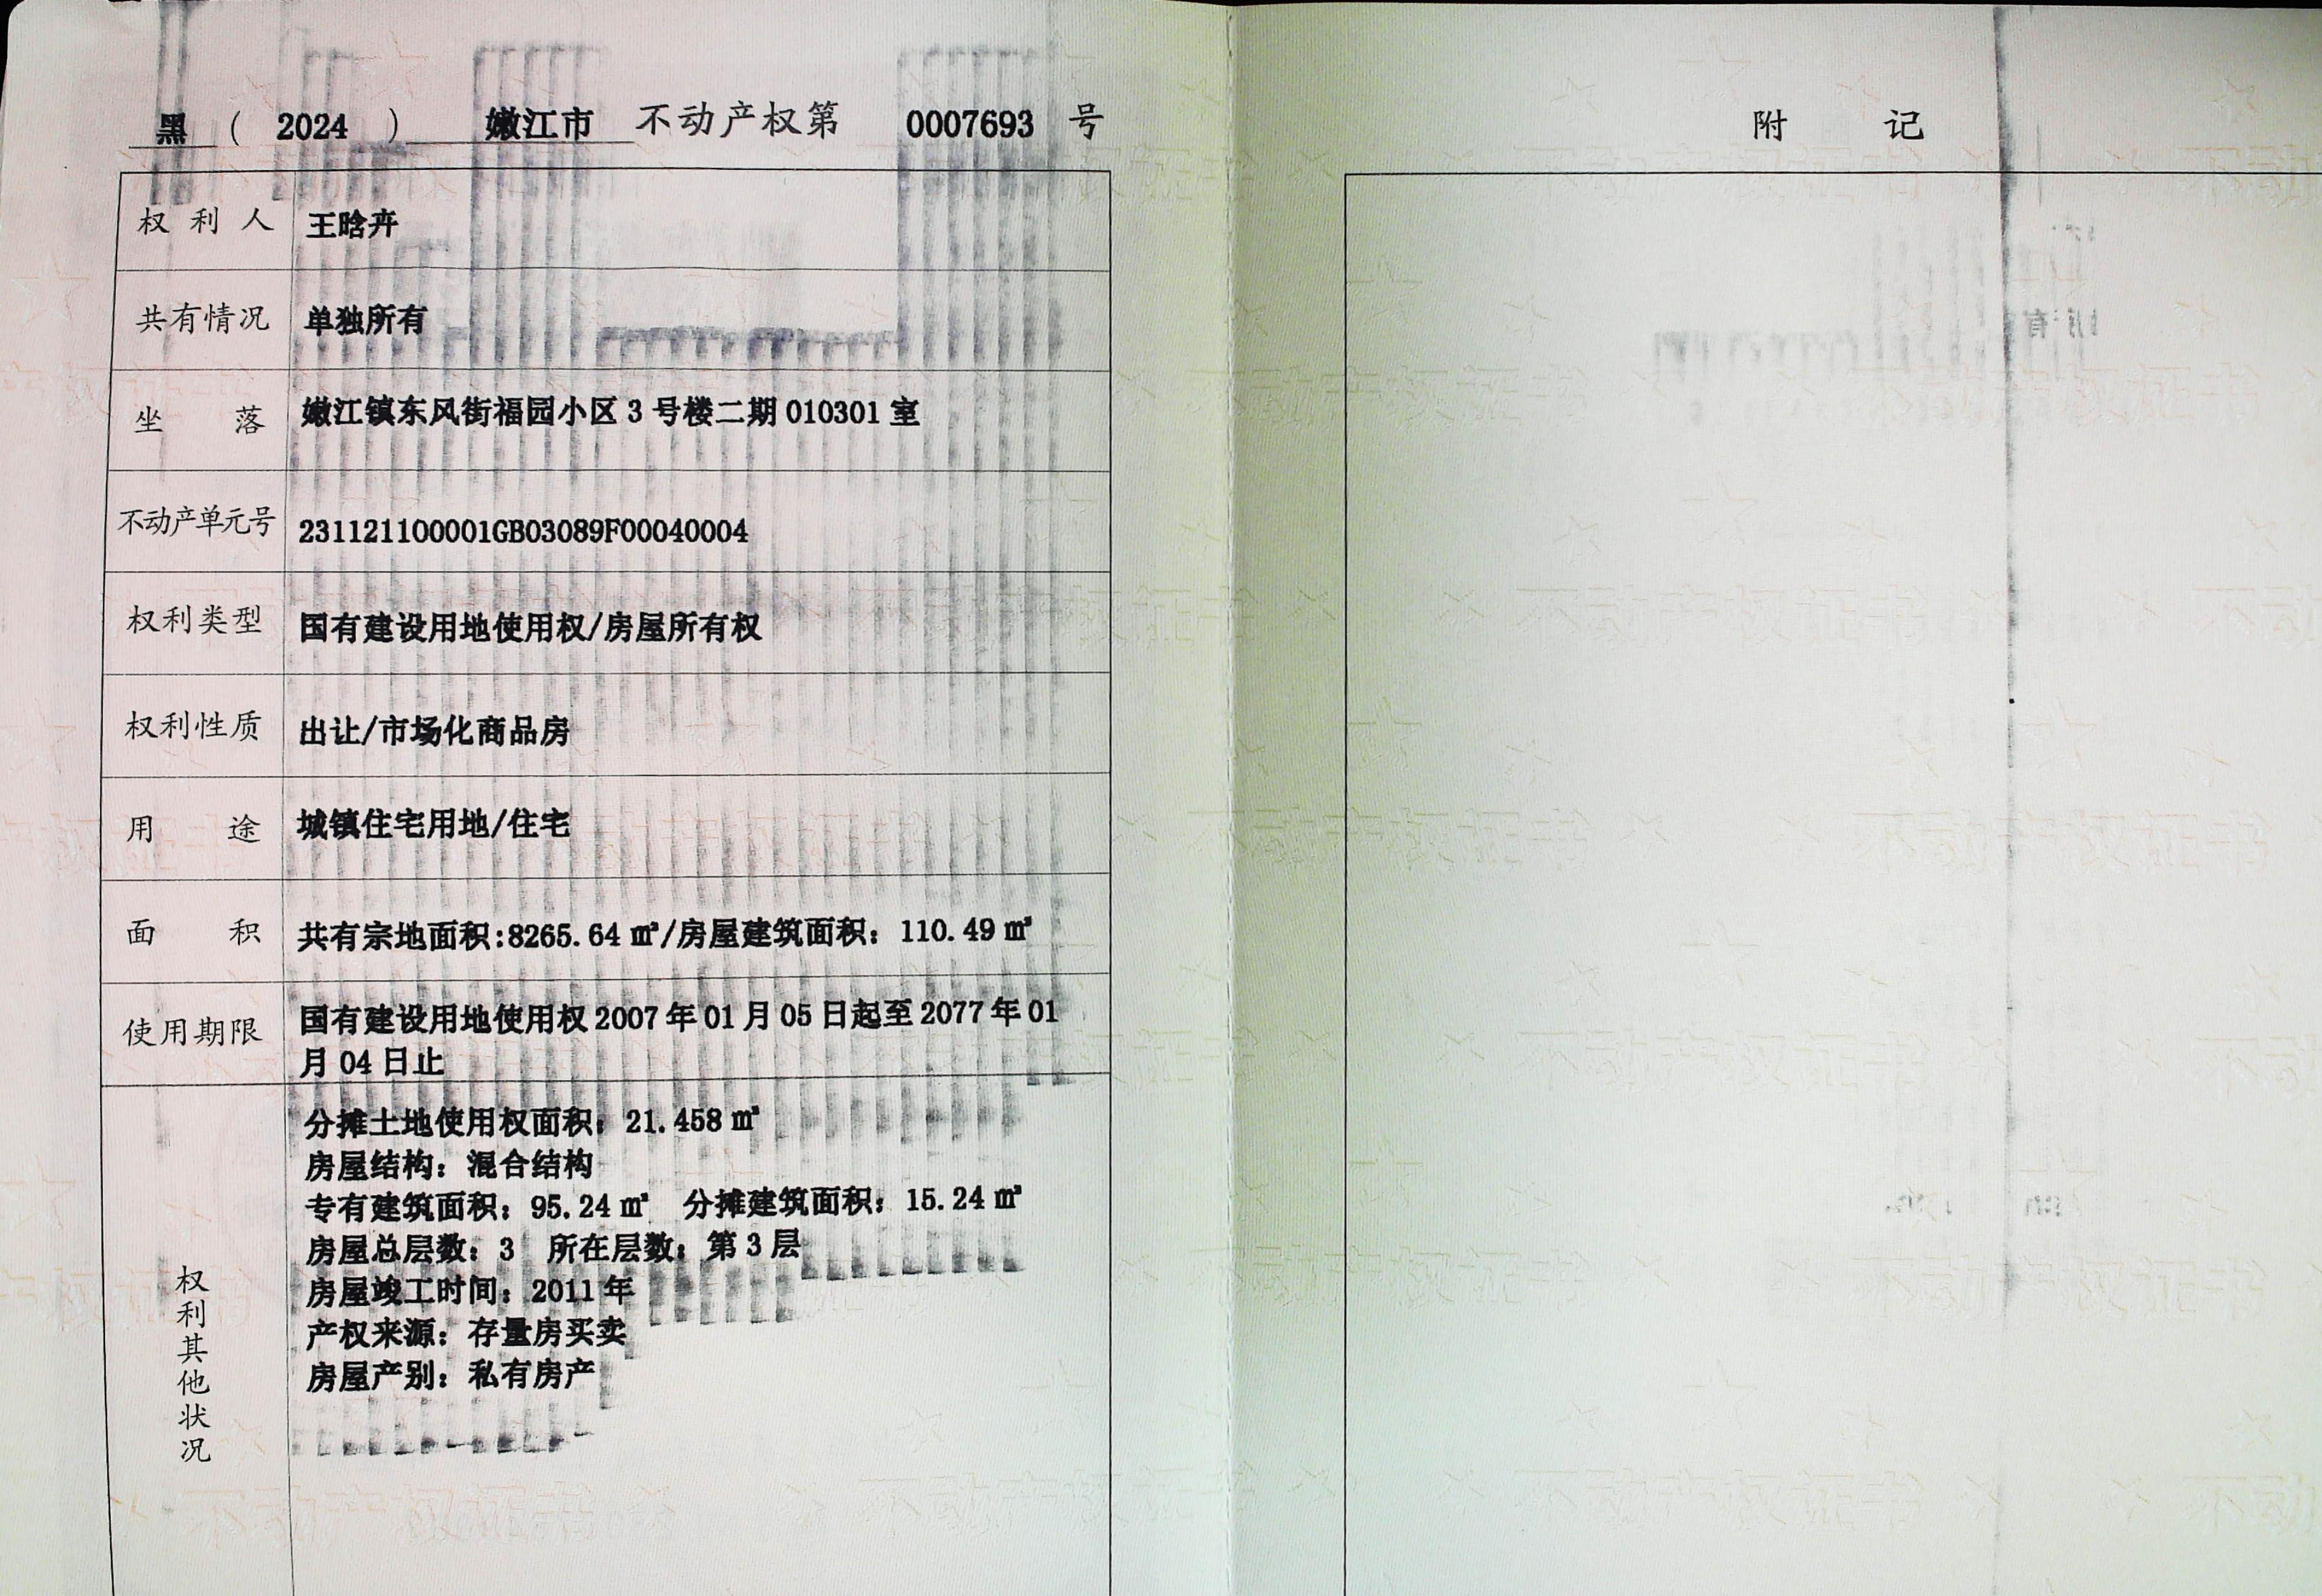 黑 （ 2024 ） 嫩江市 不动产权第 0007693 号
权利人 王晗卉
共有情况 单独所有
坐落 嫩江镇东风街福园小区 3 号楼二期 010301 室
不动产单元号 231121100001GB03089F00040004
权利类型 国有建设用地使用权/房屋所有权
权利性质 出让/市场化商品房
用途 城镇住宅用地/住宅
面积 共有宗地面积:8265.64 ㎡/房屋建筑面积：110.49 ㎡
使用期限 国有建设用地使用权 2007 年 01 月 05 日起至 2077 年 01
月 04 日止
权利其他状况
分摊土地使用权面积：21.458 ㎡
房屋结构：混合结构
专有建筑面积：95.24 ㎡ 分摊建筑面积：15.24 ㎡
房屋总层数：3 所在层数：第 3 层
房屋竣工时间：2011 年
产权来源：存量房买卖
房屋产别：私有房产
附 记